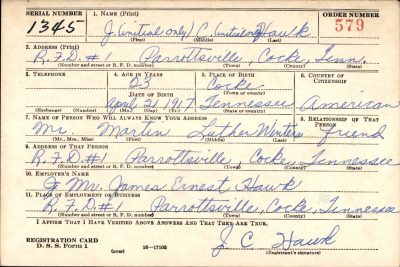 SERIAL NUMBER 1. NAME (Print) ORDER NUMBER
1345 J. (initial only) C. (initial only) Hawk 579
(First) (Middle) (Last)
2. ADDRESS (Print)
R.F.D. #1 Parrottsville, Cocke, Tenn.
(Number and street or R. F. D. number) (Town) (County) (State)
3. TELEPHONE 4. AGE IN YEARS 5. PLACE OF BIRTH 6. COUNTRY OF CITIZENSHIP
23 Cocke
DATE OF BIRTH (Town or county)
April 21, 1917 Tennessee American
(Exchange) (Number) (Mo.) (Day) (Yr.) (State or country)
7. NAME OF PERSON WHO WILL ALWAYS KNOW YOUR ADDRESS 8. RELATIONSHIP OF THAT PERSON
Mr. Martin Luther Winters friend
(Mr., Mrs., Miss) (First) (Middle) (Last)
9. ADDRESS OF THAT PERSON
R.F.D. #1 Parrottsville, Cocke, Tennessee
(Number and street or R. F. D. number) (Town) (County) (State)
10. EMPLOYER'S NAME
Mr. James Ernest Hawk
11. PLACE OF EMPLOYMENT OR BUSINESS
R.F.D. #1 Parrottsville, Cocke, Tennessee
(Number and street or R. F. D. number) (Town) (County) (State)
I AFFIRM THAT I HAVE VERIFIED ABOVE ANSWERS AND THAT THEY ARE TRUE.
REGISTRATION CARD
D. S. S. Form 1 (over) 16—17105 J. C. Hawk
(Registrant's signature)